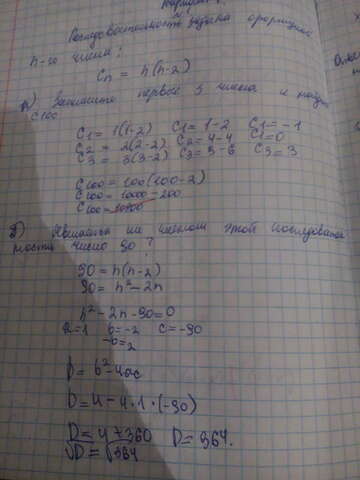 Вариант
Последовательность задана формулой
n-го числа:
Cn = n(n-2)
А) Запишите первые 3 числа и найди
C100
C1 = 1(1-2) C1 = 1-2 C1 = -1
C2 = 2(2-2) C2 = 4-4 C2 = 0
C3 = 3(3-2) C3 = 9-6 C3 = 3
C100 = 100(100-2)
C100 = 10000-200
C100 =
Б) Является ли числом этой последовате
ности число 90?
90 = n(n-2)
90 = n²-2n
n²-2n-90=0
a=1 b=-2 c=-90
-b=2
D = b²-4ac
D = 4-4·1·(-90)
D = 4+360 D = 364.
√D = √364